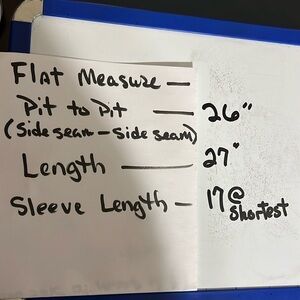 Flat Measure —
Pit to Pit — 26"
(Side seam - Side seam)
Length — 27"
Sleeve Length — 17@
Shortest